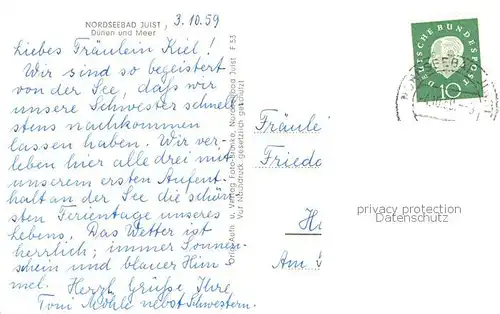 NORDSEEBAD JUIST
Dünen und Meer
3.10.59
Liebes Fräulein Kiel!
Wir sind so begeistert
von der See, daß wir
unsere Schwester schnell-
stens nachkommen
lassen haben. Wir ver-
leben hier alle drei mit
unserem ersten Aufent-
halt an der See die schön-
sten Ferientage unseres
Lebens. Das Wetter ist
herrlich; immer Sonnen-
schein und blauer Him
mel. Herzl. Grüße Ihre
Toni Möhle nebst Schwestern.
F 53
Orig.-Aufn. u. Verlag Foto-Manke, Nordseebad Juist
Nachdruck gesetzlich geschützt
DEUTSCHE BUNDESPOST
10
Fräule
Frieda
H
Am
privacy protection
Datenschutz